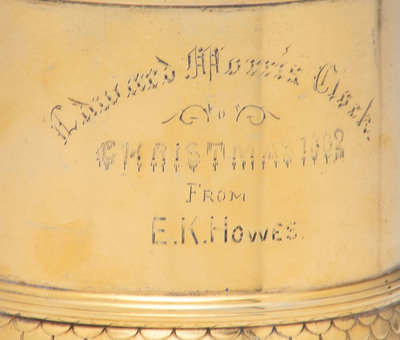 Edward Morris Cook.
CHRISTMAS 1902
FROM
E.K.HOWES.